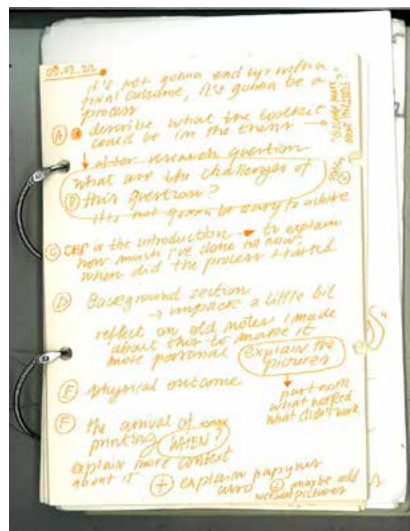 09.02.22
it's not gonna end up with a
final outcome, it's gonna be a
process
A describe what the
could be in the thesis
after research question
what are the challenges of
B this question?
it is not gonna be easy to achieve
C in the introduction → to explain
how much I've done till now.
when did the process started
D Background section
→ unpack a little bit
reflect on old notes I made
about this to make it
more personal
explain the
pictures
part work
what worked
what didn't work
E physical outcome
F the arrival of
printing WHEN?
explain more context
about it
+ explain papyrus
also + maybe add
pictures